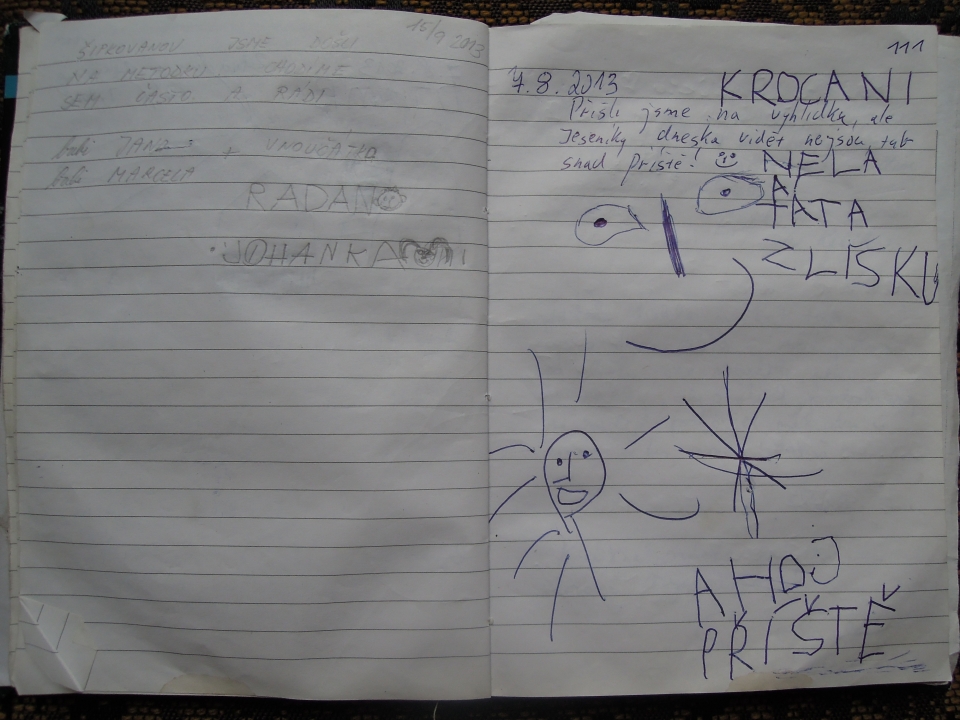 15/9 2013
ŠIPROVANOV JSME DOŠLI
NA METODKU CHODÍME
SEM ČASTO A RÁDI
babi JANA + VNOUČATA
babi MARCELA
RADAN
JOHANKA
111
7.8.2013 KROCANI
Přišli jsme na vyhlídku, ale
Jeseníky dneska vidět nejsou, tak
snad příště!
NELA
A
TATA
Z LÍŠKU
AHOJ
PŘÍŠTĚ